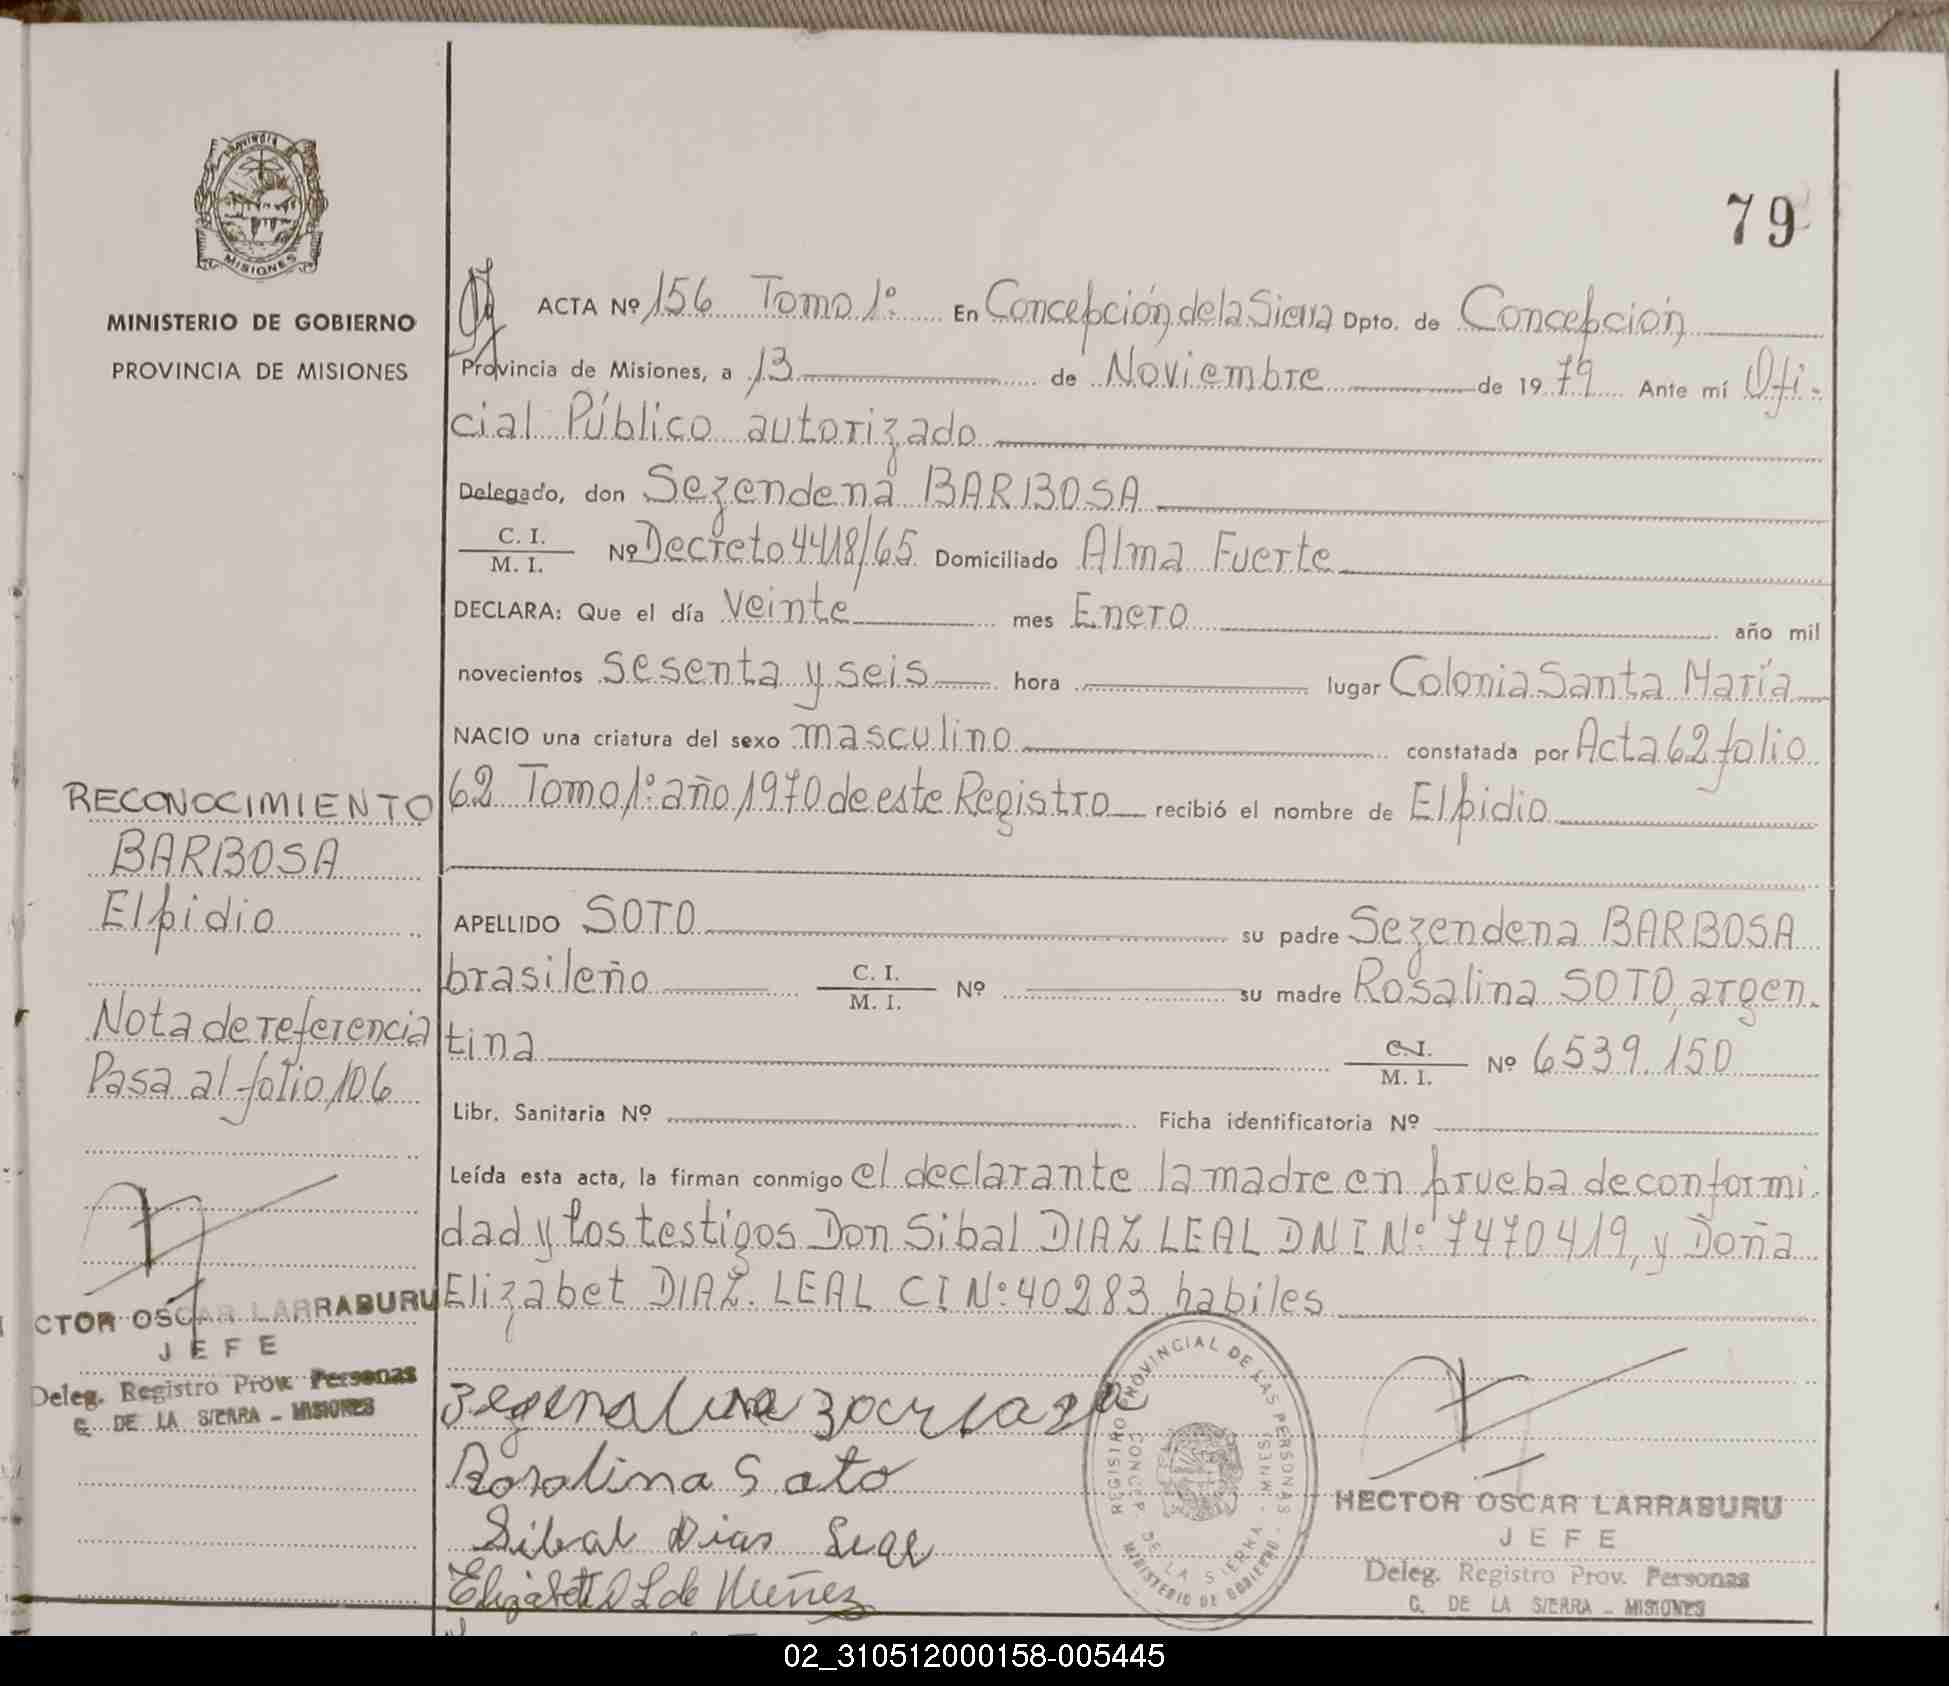 Provincia de
MISIONES
MINISTERIO DE GOBIERNO
PROVINCIA DE MISIONES
79
ACTA Nº 156 Tomo 1º En Concepción de la Sierra Dpto. de Concepción
Provincia de Misiones, a 13 de Noviembre de 1979 Ante mí Ofi-
cial Público autorizado
Delegado, don Sezendena BARBOSA
C. I.
M. I. Nº Decreto 4418/65 Domiciliado Alma Fuerte
DECLARA: Que el día Veinte mes Enero año mil
novecientos sesenta y seis hora lugar Colonia Santa María
NACIO una criatura del sexo masculino constatada por Acta 62 folio
62 Tomo 1º año 1970 de este Registro recibió el nombre de Elpidio
APELLIDO SOTO su padre Sezendena BARBOSA
brasileño C. I. M. I. Nº su madre Rosalina SOTO, argen-
tina C. I. M. I. Nº 6539.150
Libr. Sanitaria Nº Ficha identificatoria Nº
Leída esta acta, la firman conmigo el declarante la madre en prueba de conformi-
dad y los testigos Don Sibal DIAZ LEAL DNI Nº 7470419, y Doña
Elizabet DIAZ LEAL CI Nº 40283 habiles
RECONOCIMIENTO
BARBOSA
Elpidio
Nota de referencia
Pasa al folio 106
CTOR OSCAR LARRABURU
JEFE
Deleg. Registro Prov. Personas
C. DE LA SIERRA - MISIONES
Rosalina Soto
Sibal Dias Leal
Elizabett D L de Nuñez
REGISTRO PROVINCIAL DE LAS PERSONAS
CONCEP. DE LA SIERRA - MNES.
MINISTERIO DE GOBIERNO
HECTOR OSCAR LARRABURU
JEFE
Deleg. Registro Prov. Personas
C. DE LA SIERRA - MISIONES
02_310512000158-005445